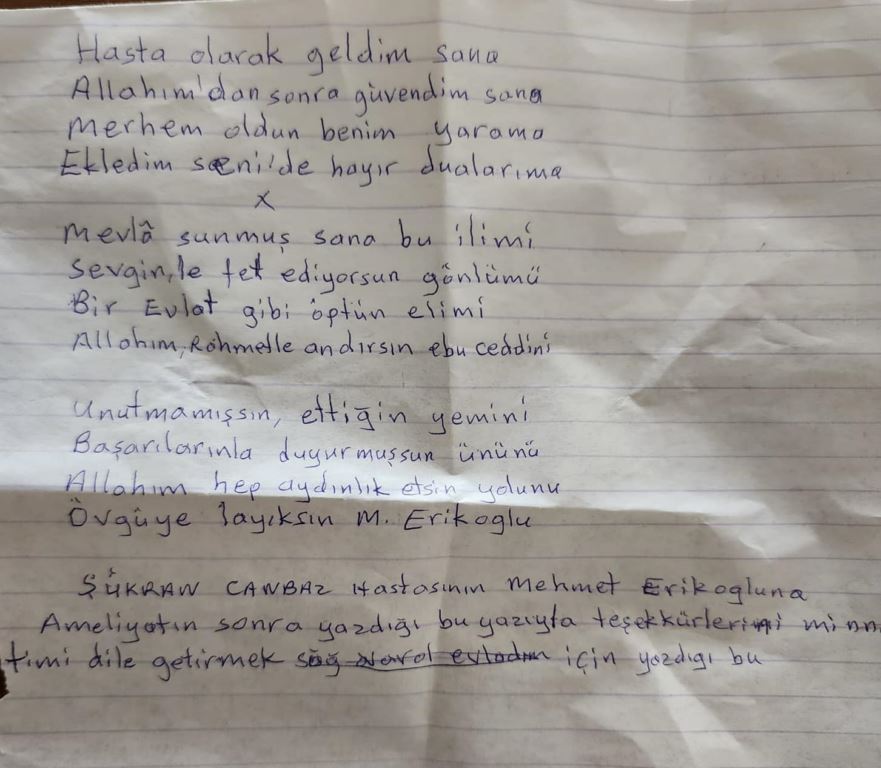 Hasta olarak geldim sana
Allahım'dan sonra güvendim sana
Merhem oldun benim yarama
Ekledim seni'de hayır dualarıma
x
Mevlâ sunmuş sana bu ilimi
Sevgin,le fet ediyorsun gönlümü
Bir Evlat gibi öptün elimi
Allahım, Rahmetle andırsın ebu ceddini
Unutmamışsın, ettiğin yemini
Başarılarınla duyurmuşsun ününü
Allahım hep aydınlık etsin yolunu
Övgüye layıksın M. Erikoglu
ŞÜKRAN CANBAZ Hastasının Mehmet Erikogluna
Ameliyatın sonra yazdığı bu yazıyta teşekkürlerimi minn
timi dile getirmek sağ varol evladım için yazdıgı bu